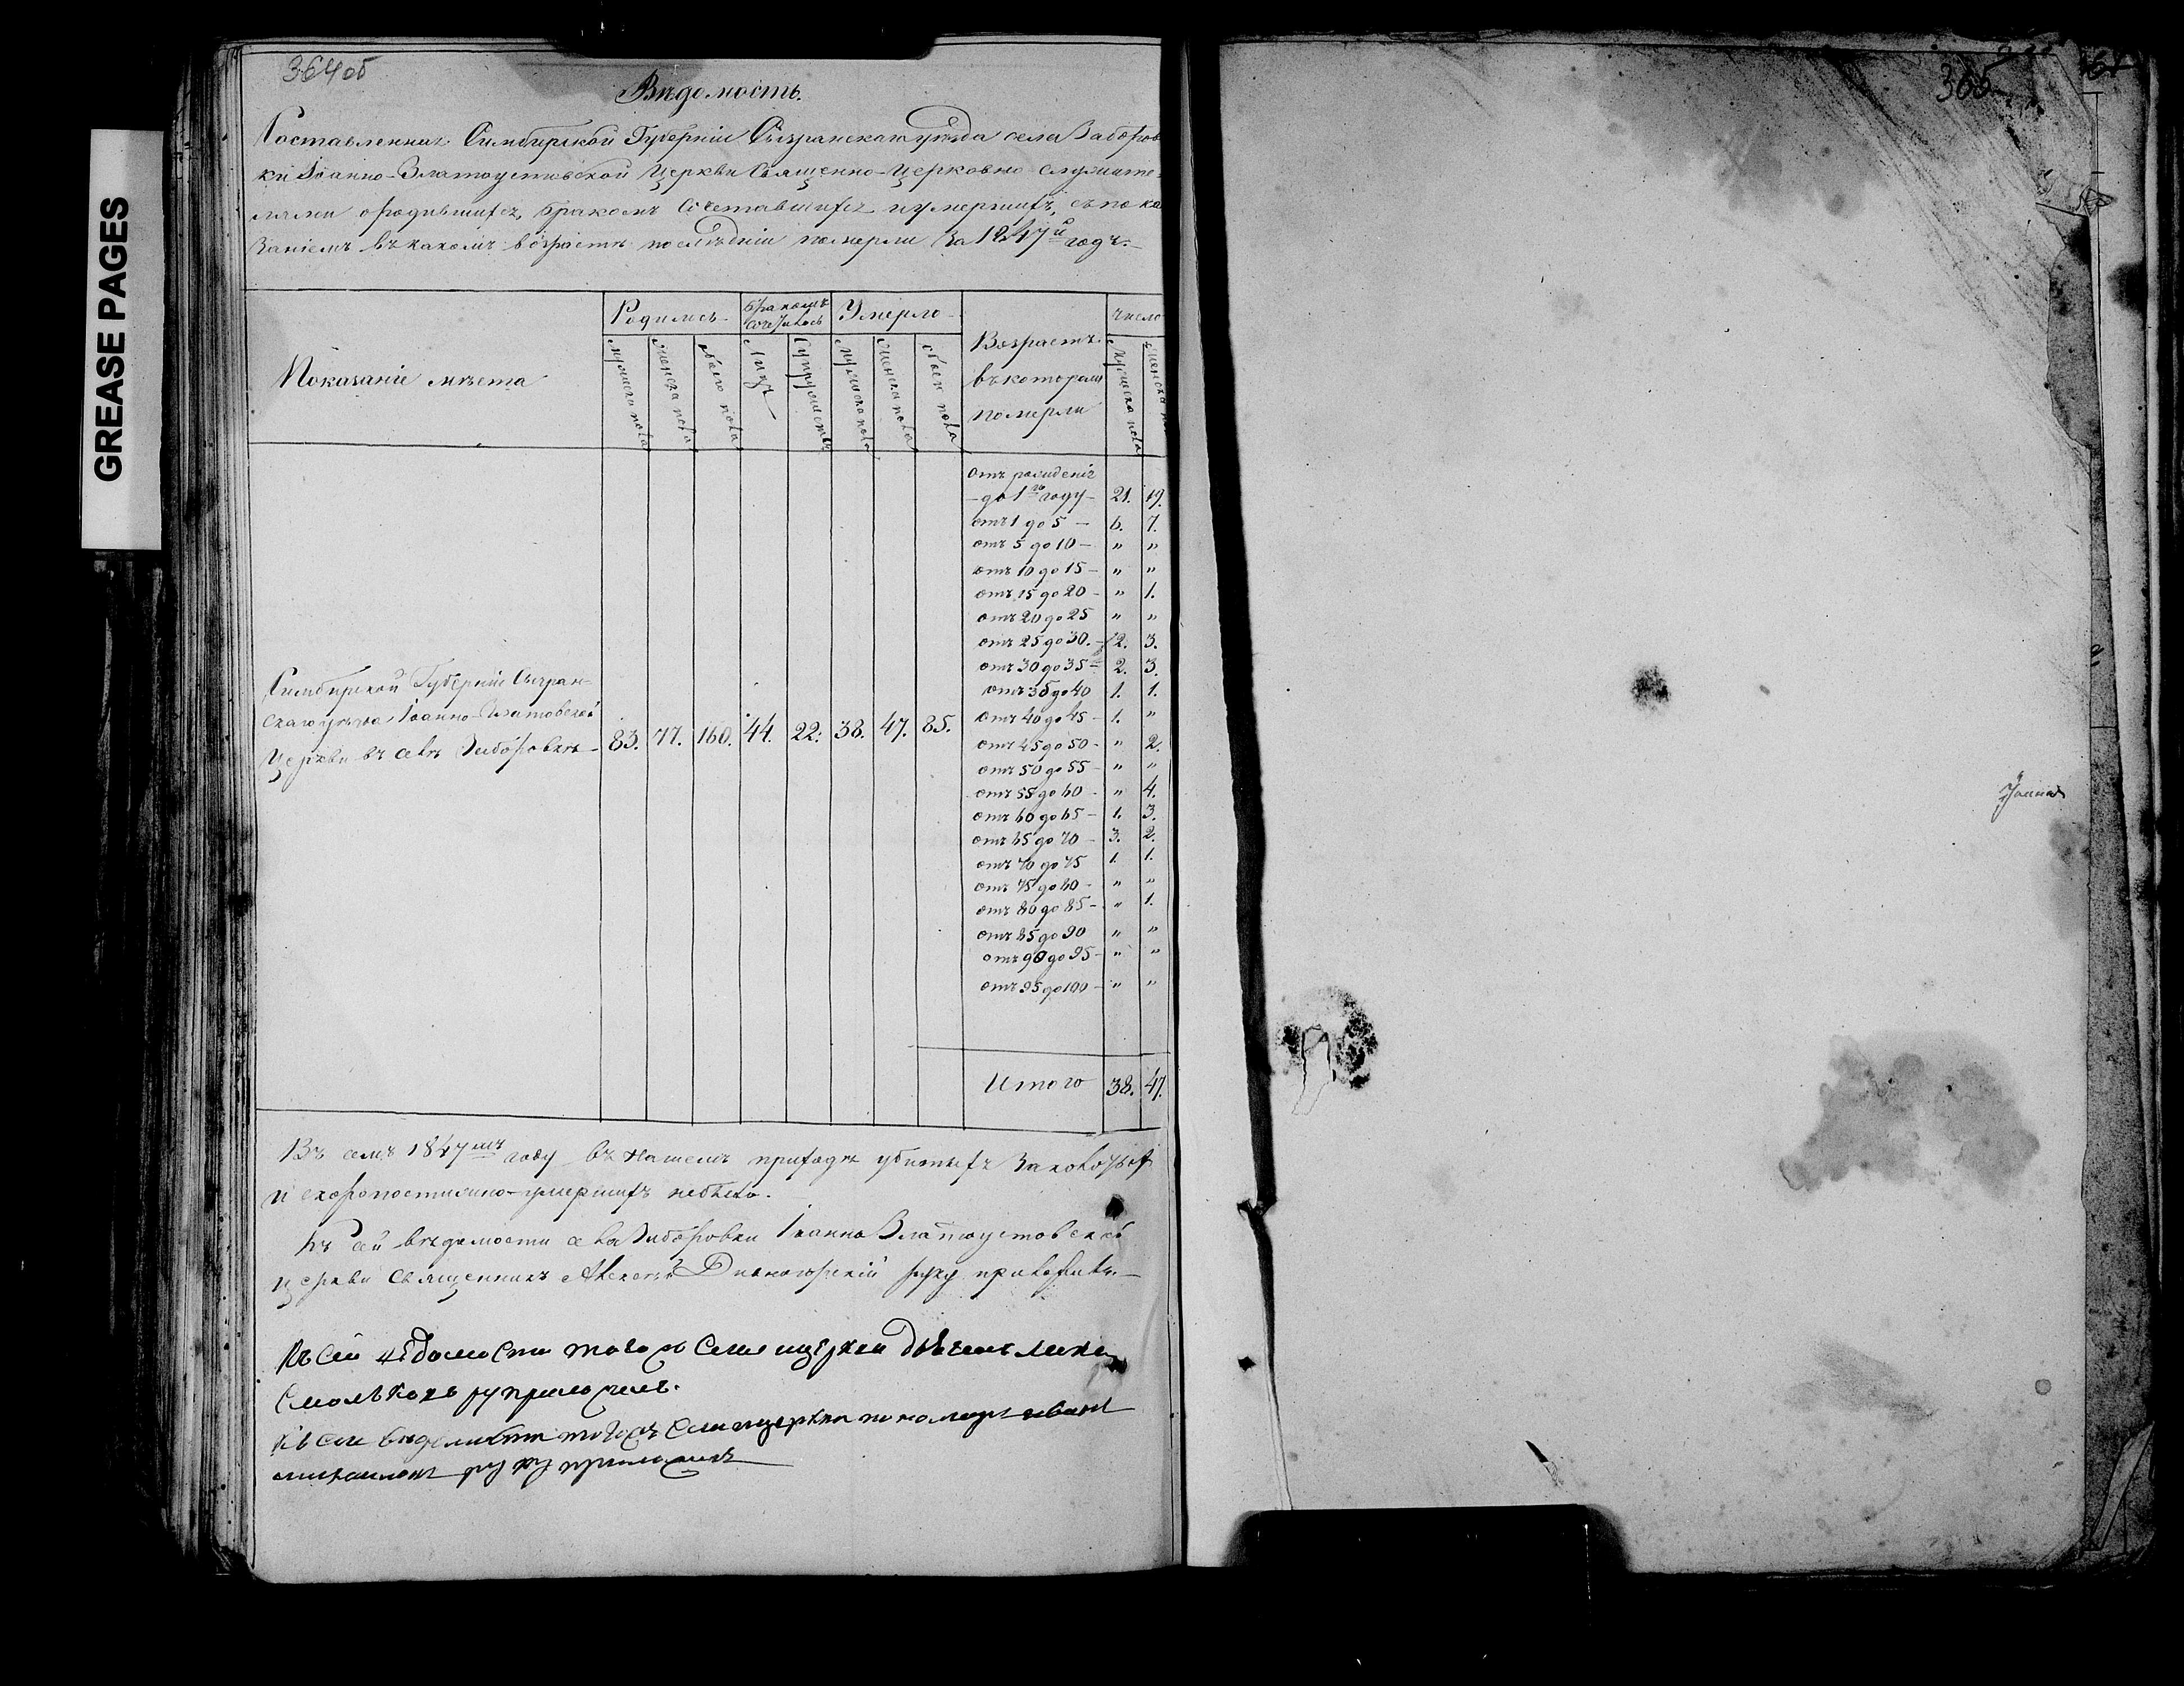 GREASE PAGES
364об
Вѣдомость.
Составленная Симбирской Губерніи Сызранскаго уѣзда села Заборов
ки Іоанно-Златоустовской Церкви Священно-Церковно служите-
лями о родившихся, бракомъ сочетавшихся и умершихъ, съ пока
заніемъ въ какомъ возрастѣ послѣдніи померли за 1847й годъ.
Показаніе мѣста
Родилось
бракомъ сочеталось
Умерло
Возрастъ въ которомъ померли
число
мужеска пола
женска пола
обоего пола
Лицъ
Супружествъ
мужеска пола
женска пола
обоего пола
мужеска пола
женска
отъ рожденія
до 1го году 21. 19.
отъ 1 до 5 — 6. 7.
отъ 5 до 10 — " "
отъ 10 до 15 — " "
отъ 15 до 20 — " 1.
отъ 20 до 25 " "
отъ 25 до 30. — 2. 3.
отъ 30 до 35 — 2. 3.
отъ 35 до 40 1. 1.
отъ 40 до 45 — 1. "
отъ 45 до 50 — " 2.
отъ 50 до 55 — " "
отъ 55 до 60 — " 4.
отъ 60 до 65 — 1. 3.
отъ 65 до 70 — 3. 2.
отъ 70 до 75 1. 1.
отъ 75 до 80 — " "
отъ 80 до 85 — " 1.
отъ 85 до 90 " "
отъ 90 до 95 — " "
отъ 95 до 100 — " "
Симбирской Губерніи Сызран-
скаго уѣзда Іоанно-Златовской
Церкви въ селѣ Заборовкѣ — 83. 77. 160. 44. 22. 38. 47. 85.
Итого 38. 47.
Въ семъ 1847мъ году въ нашемъ приходѣ убитыхъ
и скоропостижно-умершихъ небыло.
Къ сей вѣдомости села Заборовки Іоанно Златоустовской
церкви Священникъ Алексѣй Дивногорскій руку приложилъ.
Къ сей вѣдомости тогожъ села церкви дьячекъ
руку приложилъ.
Къ сей вѣдомости тогожъ села церкви пономарь Иванъ
Михаиловъ руку приложилъ
365